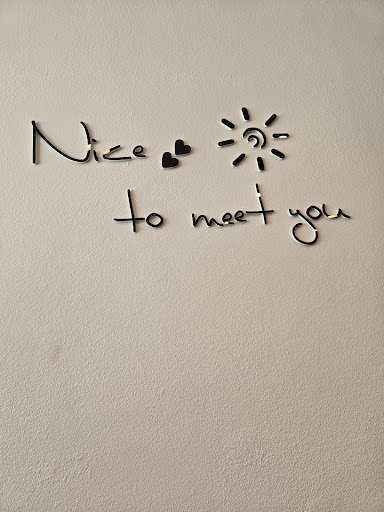 Nice
to meet you